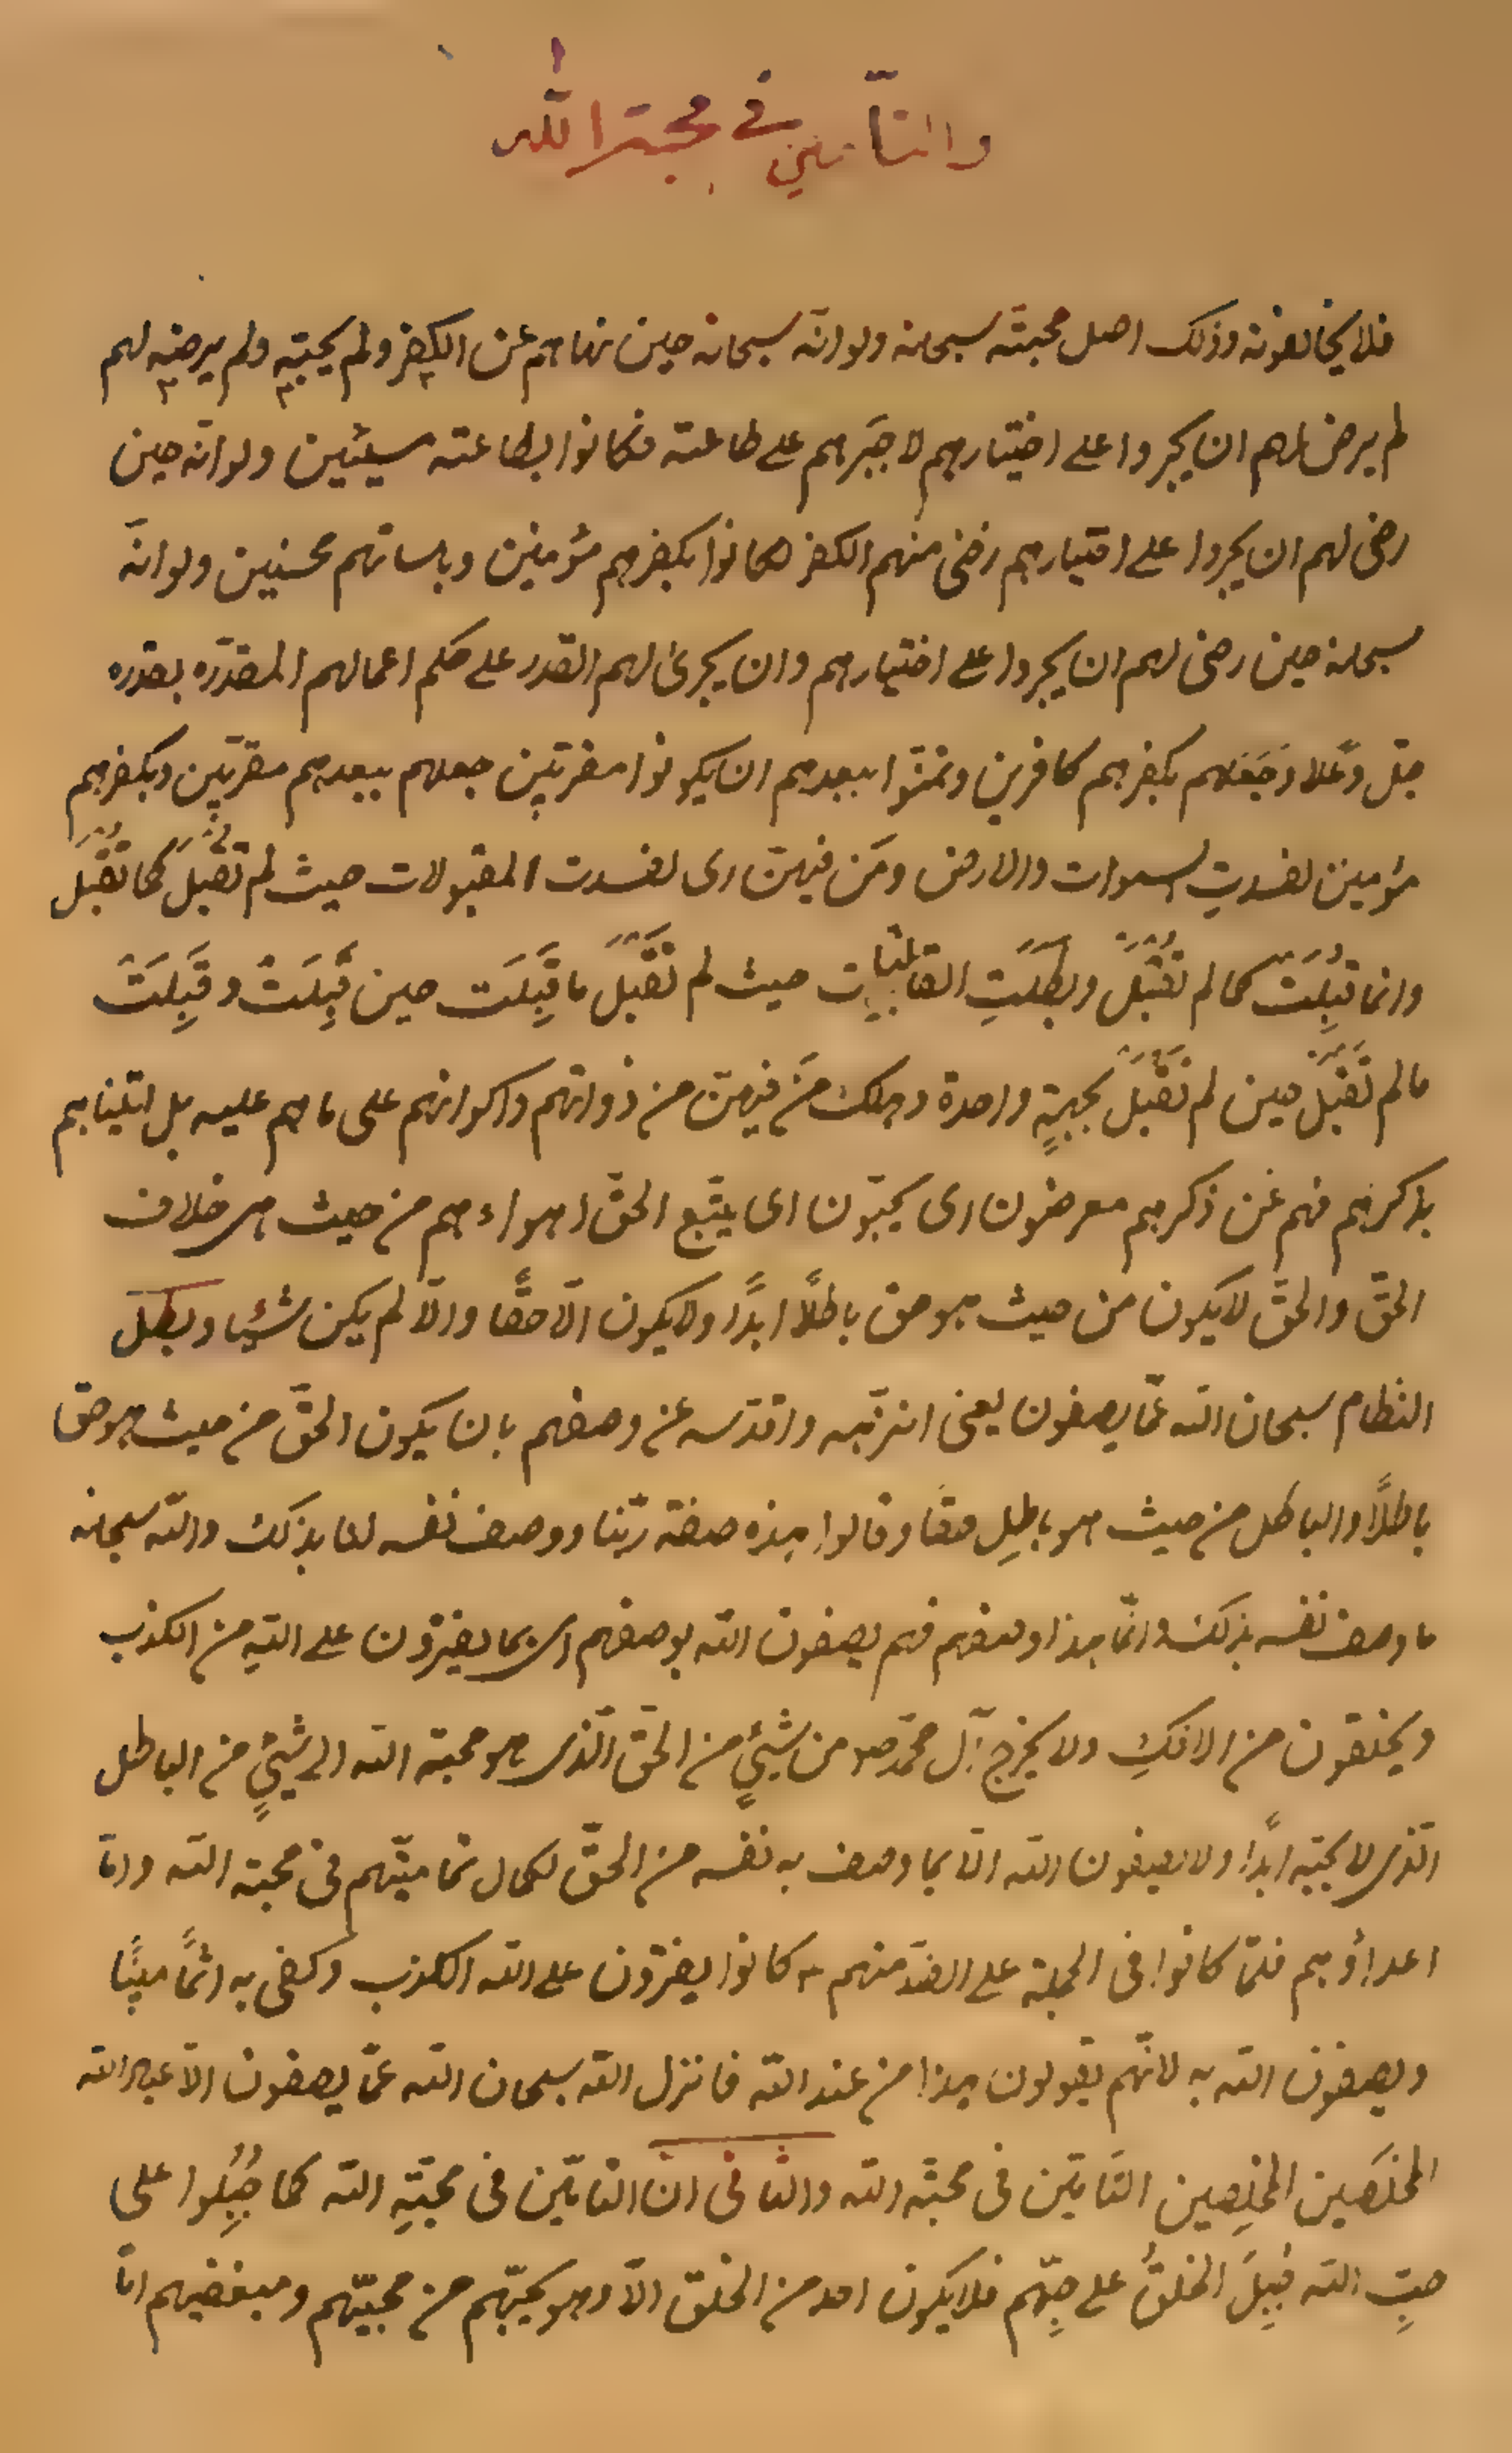 والتامين في محبة الله
فلا يخالفونه وذلك اصل محبته سبحانه ولو انه سبحانه حين نهاهم عن الكفر ولم يحبه ولم يرضه لهم
لم يرض لهم ان يجروا على اختيارهم لاجبرهم على طاعته فكانوا بطاعته مسيئين ولو انه حين
رضى لهم ان يجروا على اختيارهم رضى منهم الكفر لكانوا بكفرهم مؤمنين وباسائتهم محسنين ولو انه
سبحانه حين رضى لهم ان يجروا على اختيارهم وان يجرى لهم القدر على حكم اعمالهم المقدره بقدره
جل وعلا وجعلهم بكفرهم كافرين وتمنوا ببعدهم ان يكونوا مقربين جعلهم ببعدهم مقربين وبكفرهم
مؤمنين لفسدت السموات والارض ومن فيهن اى لفسدت المقبولات حيث لم تقبل كما تقبل
وانما قبلت كما لم تقبل وبطلت القابليات حيث لم تقبل ما قبلت حين قبلت وقبلت
ما لم تقبل حين لم تقبل بجهة واحدة وهلك من فيهن من ذواتهم واكوانهم على ما هم عليه بل اتيناهم
بذكرهم فهم عن ذكرهم معرضون اى يحبون ان يتبع الحق اهواءهم من حيث هى خلاف
الحق والحق لا يكون من حيث هو حق باطلا ابدا ولا يكون الا حقا والا لم يكن شيئا وبطل
النظام سبحان الله عما يصفون يعنى انزهه واقدسه عن وصفهم بان يكون الحق من حيث هو حق
باطلا والباطل من حيث هو باطل حقا وقالوا هذه صفة ربنا ووصف نفسه لنا بذلك والله سبحانه
ما وصف نفسه بذلك وانما هذا وصفهم فهم يصفون الله بوصفهم اى بما يفترون على الله من الكذب
ويختلقون من الافك ولا يخرج آل محمد ص من شيئ من الحق الذى هو محبة الله الى شيئ من الباطل
الذى لا يحبه ابدا ولا يصفون الله الا بما وصف به نفسه من الحق لكمال تماميتهم فى محبة الله واما
اعداؤهم فلما كانوا فى الجملة على الضد منهم كانوا يفترون على الله الكذب وكفى به اثما مبينا
ويصفون الله به لانهم يقولون هذا من عند الله فانزل الله سبحان الله عما يصفون الا عباد الله
المخلصين المخلصين التامين فى محبة الله والثانى ان التامين فى محبة الله كما جبلوا على
حب الله جبل الخلق على حبهم فلا يكون احد من الخلق الا وهو يحبهم من محبيهم ومبغضيهم اما